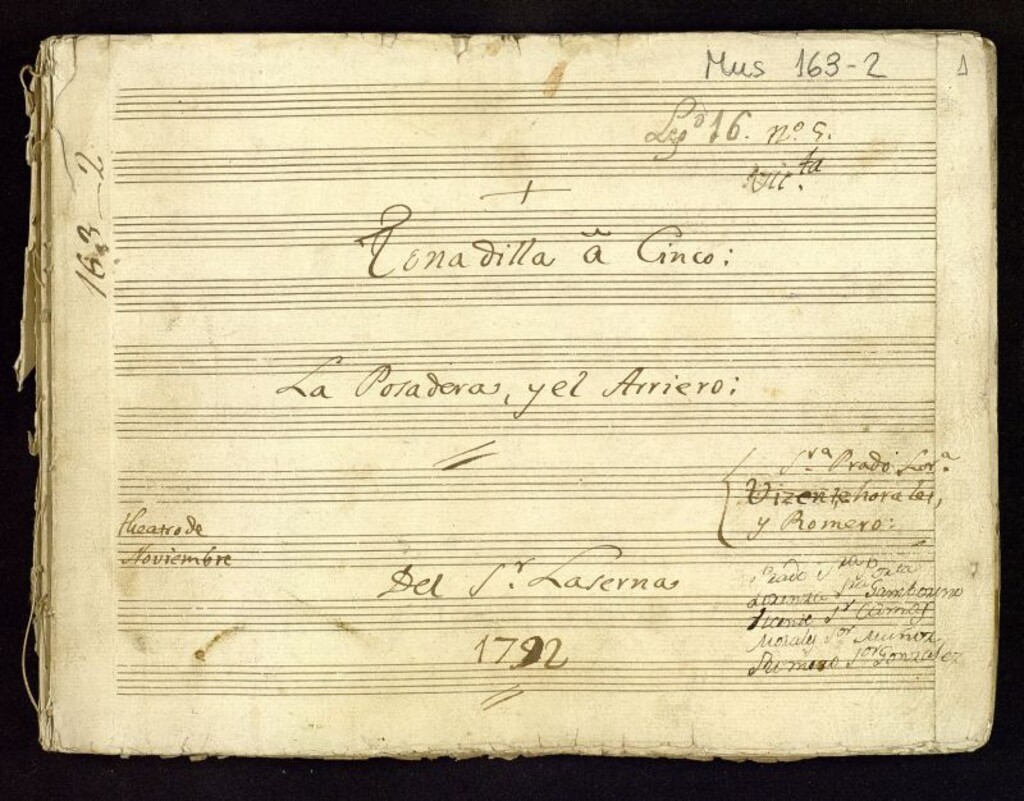 Mus 163-2
1
Leg.º 16. nº 5.
Vic.ta
163-2
Tonadilla â Cinco:
La Posadera, y el Arriero:
Sr.ª Prado: Lor.ª
Vizente, Morales,
y Romero:
theatro de
Noviembre
Del S.r Laserna
1792
Prado Sra
Lorenza Sra Gamborino
Vicente Sr
Morales Sor Muñoz
Romero Sor Gonzalez